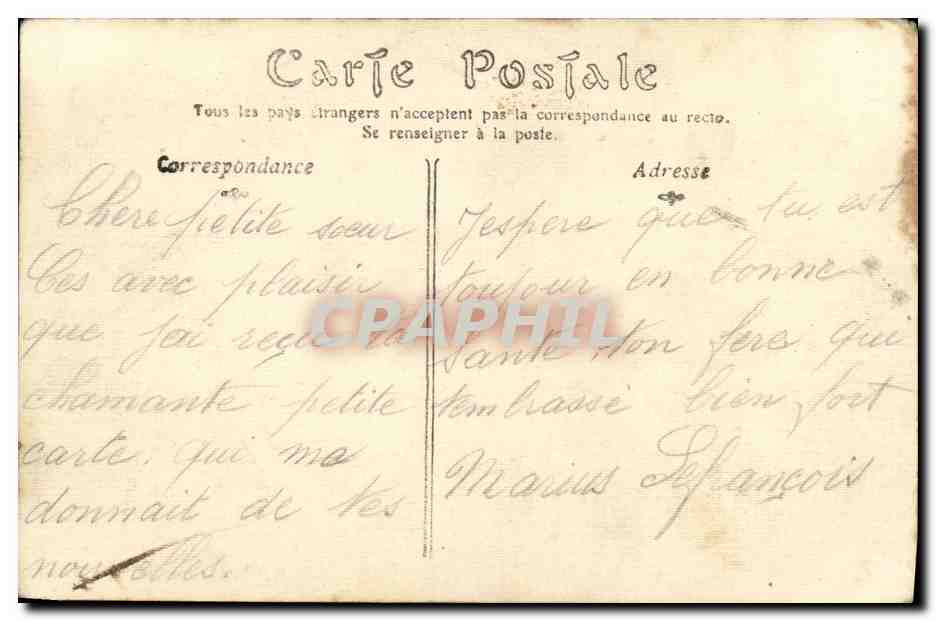 Carte Postale
Tous les pays étrangers n'acceptent pas la correspondance au recto.
Se renseigner à la poste.
Correspondance
Chère petite sœur
Ces avec plaisir
que jai reçu ta
chamante petite
carte. qui ma
donnait de tes
nouvelles.
Adresse
Jespere que tu est
toujour en bonne
santé. ton fere qui
tembrasse bien fort
Marius Lefrançois
CPAPHIL